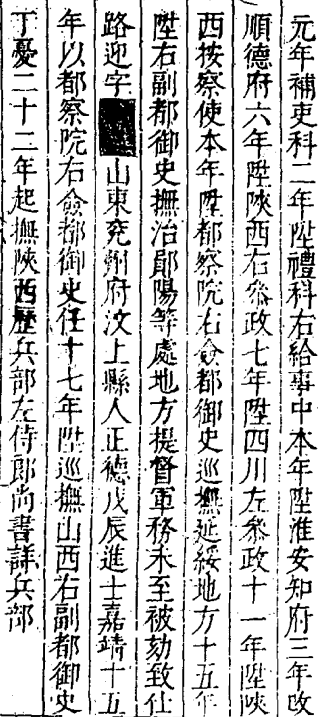 元年補吏科二年陞禮科右給事中本年陞淮安知府三年改
順德府六年陞陝西右叅政七年陞四川左叅政十一年陞陝
西按察使本年陞都察院右僉都御史巡撫延綏地方十五年
陞右副都御史撫治鄖陽等處地方提督軍務未至被劾致仕
路迎字山東兖州府汶上縣人正德戊辰進士嘉靖十五
年以都察院右僉都御史任十七年陞巡撫山西右副都御史
丁憂二十二年起撫陝西歷兵部左侍郎尚書詳兵部